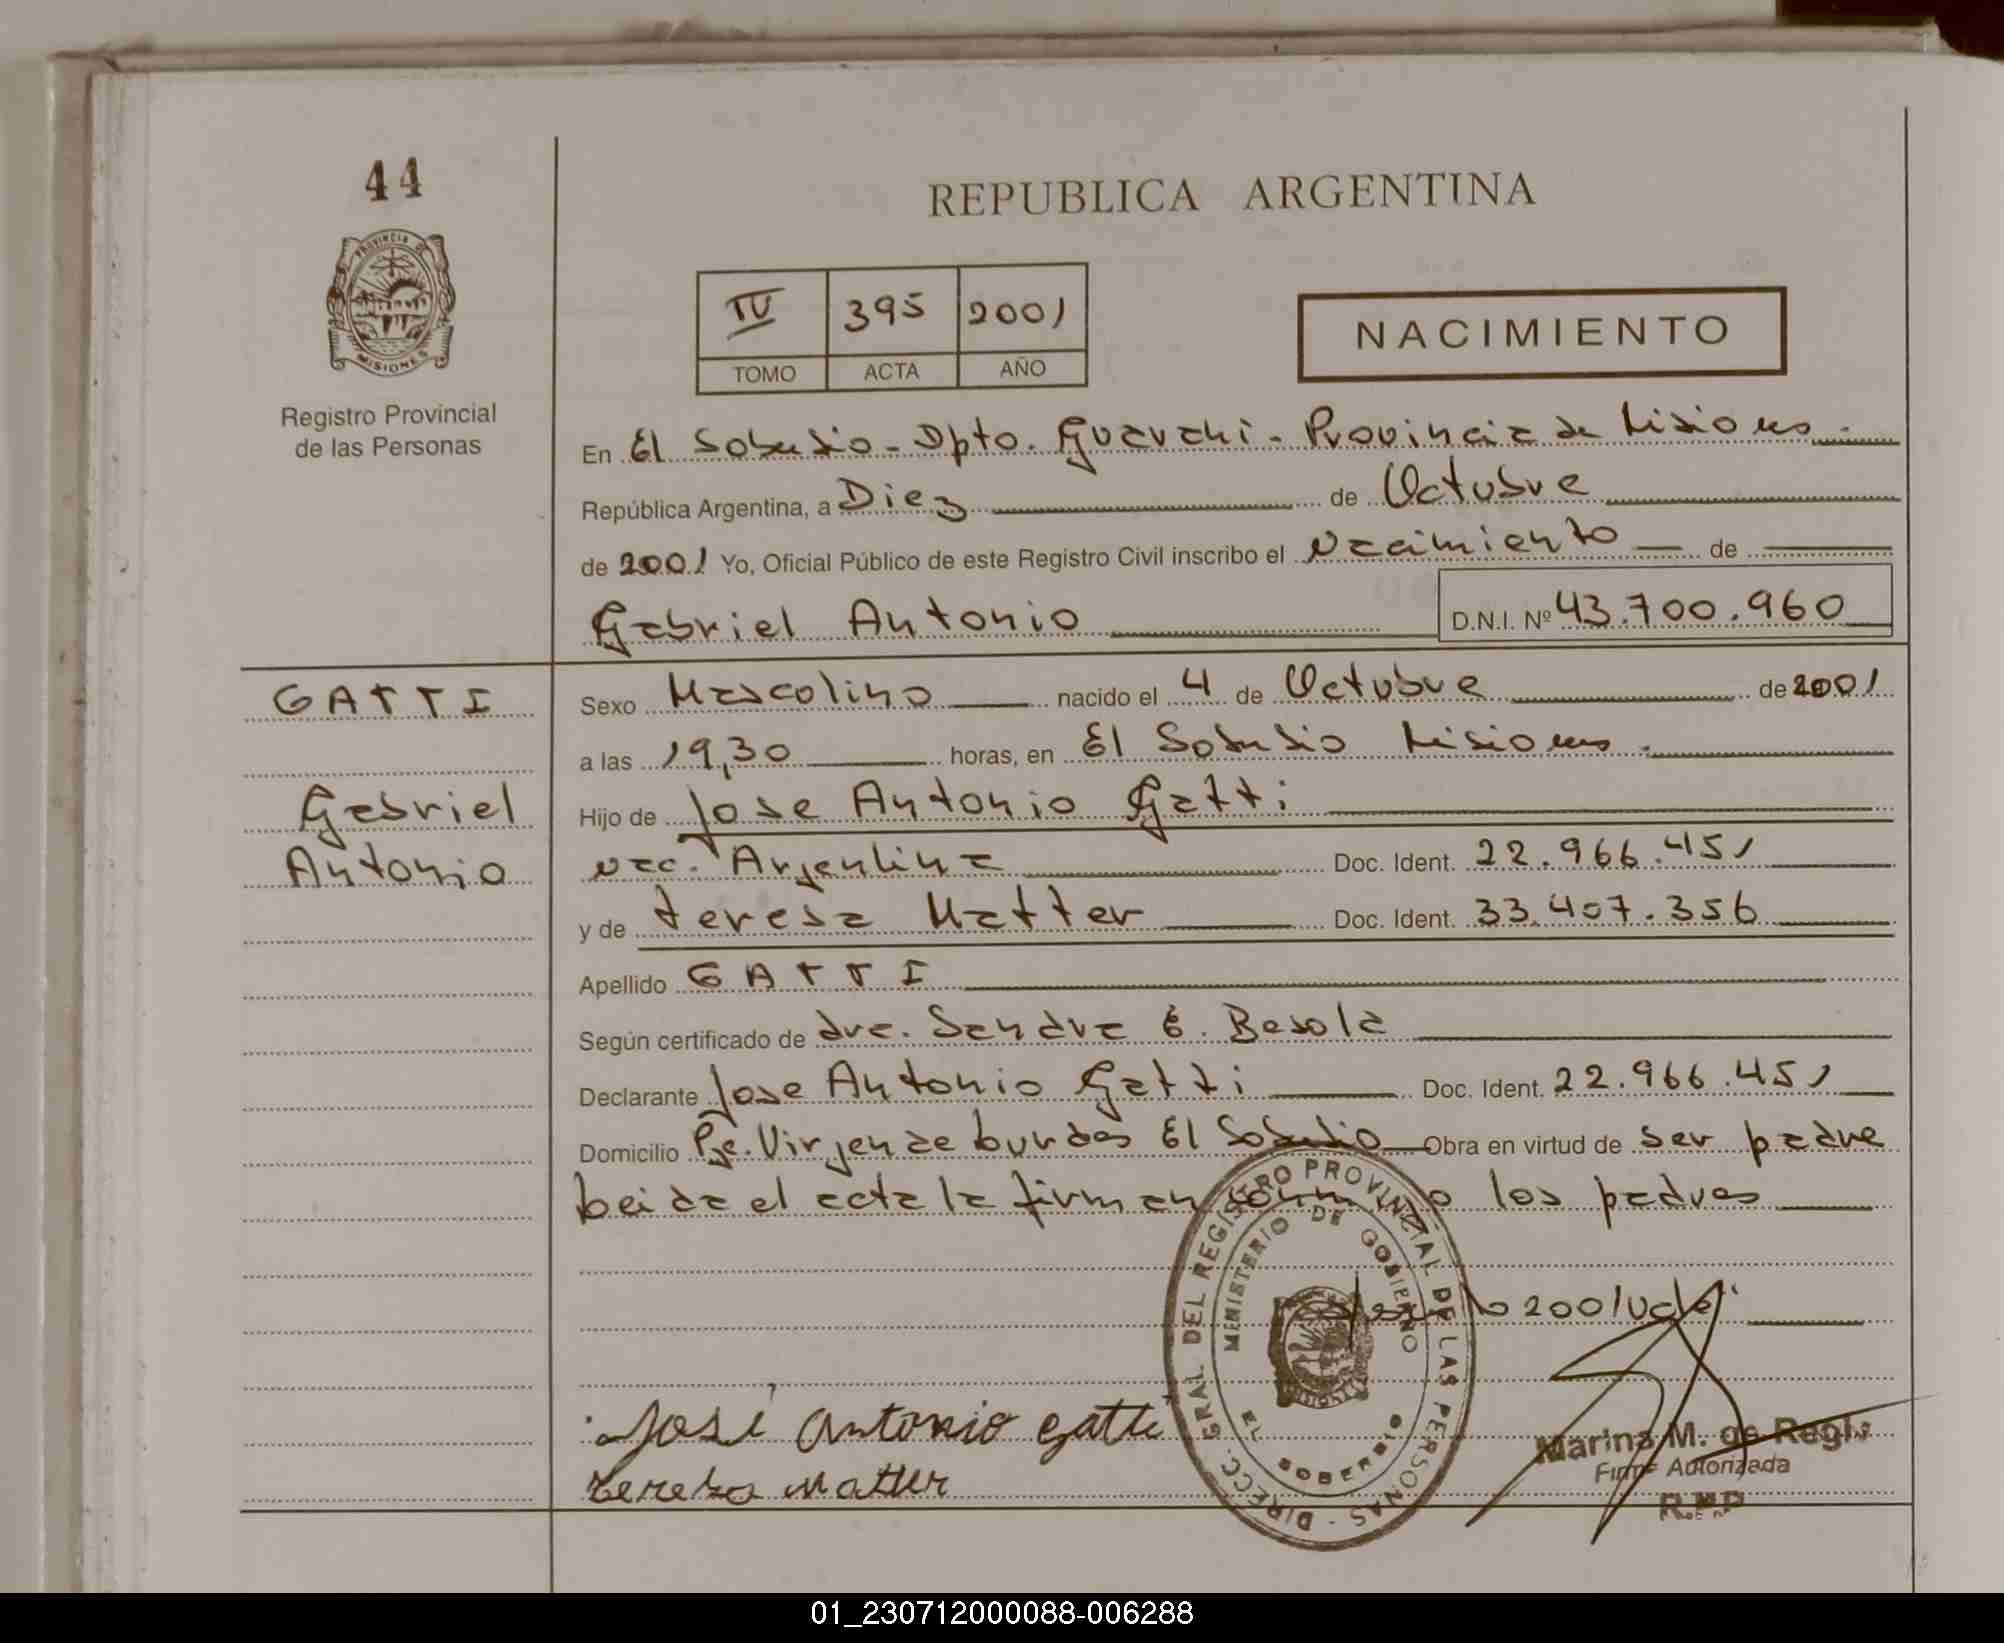 44
REPUBLICA ARGENTINA
PROVINCIA DE
MISIONES
Registro Provincial
de las Personas
IV 395 2001
TOMO ACTA AÑO
NACIMIENTO
En El Soberbio - Dpto. Guarani - Provincia de Misiones.
República Argentina, a Diez de Octubre
de 2001 Yo, Oficial Público de este Registro Civil inscribo el Nacimiento de
Gabriel Antonio D.N.I. Nº 43.700.960
GATTI
Gabriel
Antonio
Sexo Mascolino nacido el 4 de Octubre de 2001
a las 19,30 horas, en El Soberbio Misiones.
Hijo de Jose Antonio Gatti
nac. Argentina Doc. Ident. 22.966.451
y de teresa Matter Doc. Ident. 33.407.356
Apellido GATTI
Según certificado de dra. Sandra E. Besola
Declarante Jose Antonio Gatti Doc. Ident. 22.966.451
Domicilio Pje. Virjen de burdes El Soberbio Obra en virtud de ser padre
Leida el acta la firman los padres
2001 Vale
DIRECC. GRAL DEL REGISTRO PROVINCIAL DE LAS PERSONAS -
MINISTERIO DE GOBIERNO
EL SOBERBIO
José Antonio Gatti
Teresa Matter
Marina M. de
Firma Autorizada